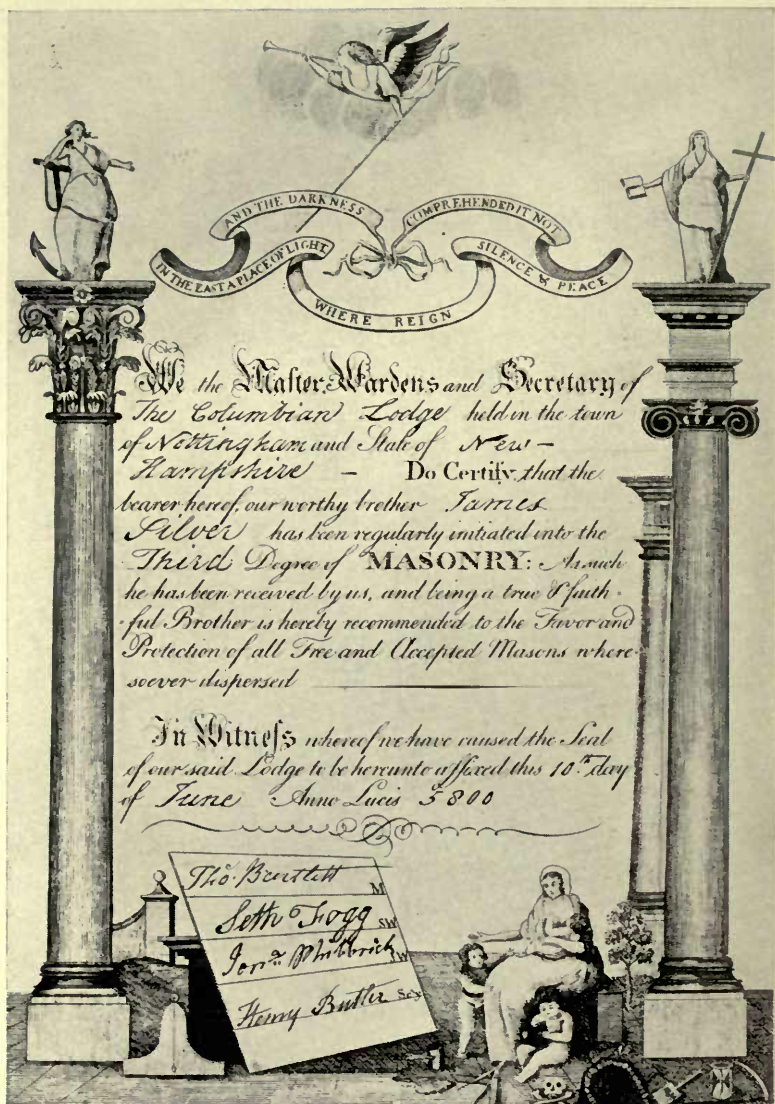 AND THE DARKNESS COMPREHENDED IT NOT
IN THE EAST A PLACE OF LIGHT
WHERE REIGN
SILENCE & PEACE
We the Master, Wardens and Secretary of
The Columbian Lodge held in the town
of Nottingham and State of New-
Hampshire – Do Certify, that the
bearer hereof, our worthy brother James
Silver has been regularly initiated into the
Third Degree of MASONRY: As such
he has been received by us, and being a true & faith-
ful Brother is hereby recommended to the Favor and
Protection of all Free and Accepted Masons where-
soever dispersed
In Witness whereof we have caused the Seal
of our said Lodge to be hereunto affixed this 10.th day
of June Anno Lucis 5800
Tho. Bartlett M
Seth Fogg SW
Jona. Philbrick JW
Henry Butler Secy